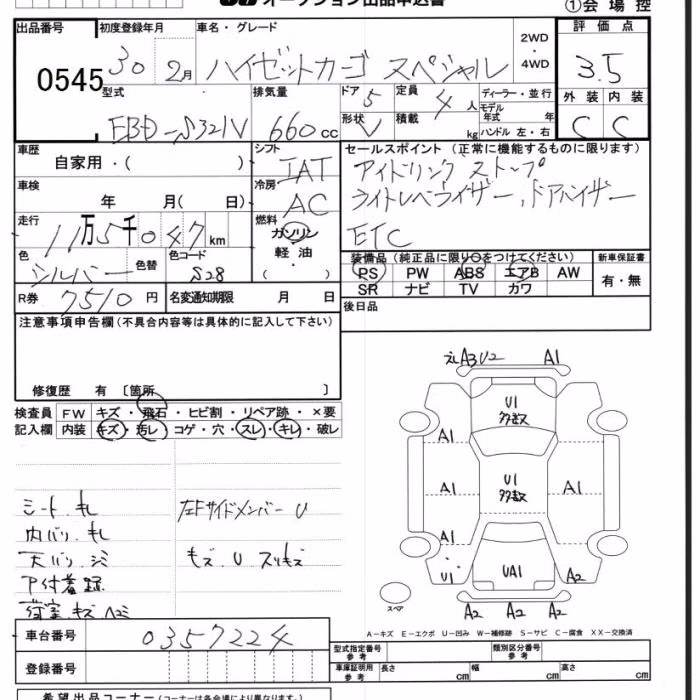 オークション出品申込書 ①会場控
出品番号 初度登録年月 車名・グレード 2WD・4WD 評価点
0545 30 2月 ハイゼットカーゴ スペシャル 3.5
型式 排気量 ドア 5 定員 4人 ディーラー・並行 外装 内装
EBD-S321V 660cc 形状 V 積載 kg モデル年式 年 ハンドル 左・右 C C
車歴 シフト セールスポイント(正常に機能するものに限ります)
自家用・( ) IAT アイドリング ストップ
車検 冷房 ライトレベライザー、ドアバイザー
年 月( 日) AC
走行 燃料 ETC
11万5千047km ガソリン
色 色替 色コード 軽油 装備品(純正品に限り○をつけてください) 新車保証書
シルバー S28 ( ) PS PW ABS エアB AW 有・無
R券 7510円 名変通知期限 月 日 SR ナビ TV カワ
注意事項申告欄(不具合内容等は具体的に記入して下さい) 後日品
修復歴 有 〔箇所 〕
検査員 FW キズ・飛石・ヒビ割・リペア跡・×要
記入欄 内装 キズ・汚レ・コゲ・穴・スレ・キレ・破レ
A3 U2 A1
U1
多数
A1
A1 U1 多数 A1
A1
U1 UA1 A2
スペア A2 A2 A2
シート キレ 左Fサイドメンバー U
内バリ キレ
天バリ シミ キズ U スリキズ
荷室 キズ ヘコミ
A-キズ E-エクボ U-凹み W-補修跡 S-サビ C-腐食 XX-交換済
車台番号 0357224
登録番号
型式指定番号 参考 類別区分番号 参考
車庫証明用 参考 長さ cm 幅 cm 高さ cm
希望出品コーナー(コーナーは各会場により異なります。)